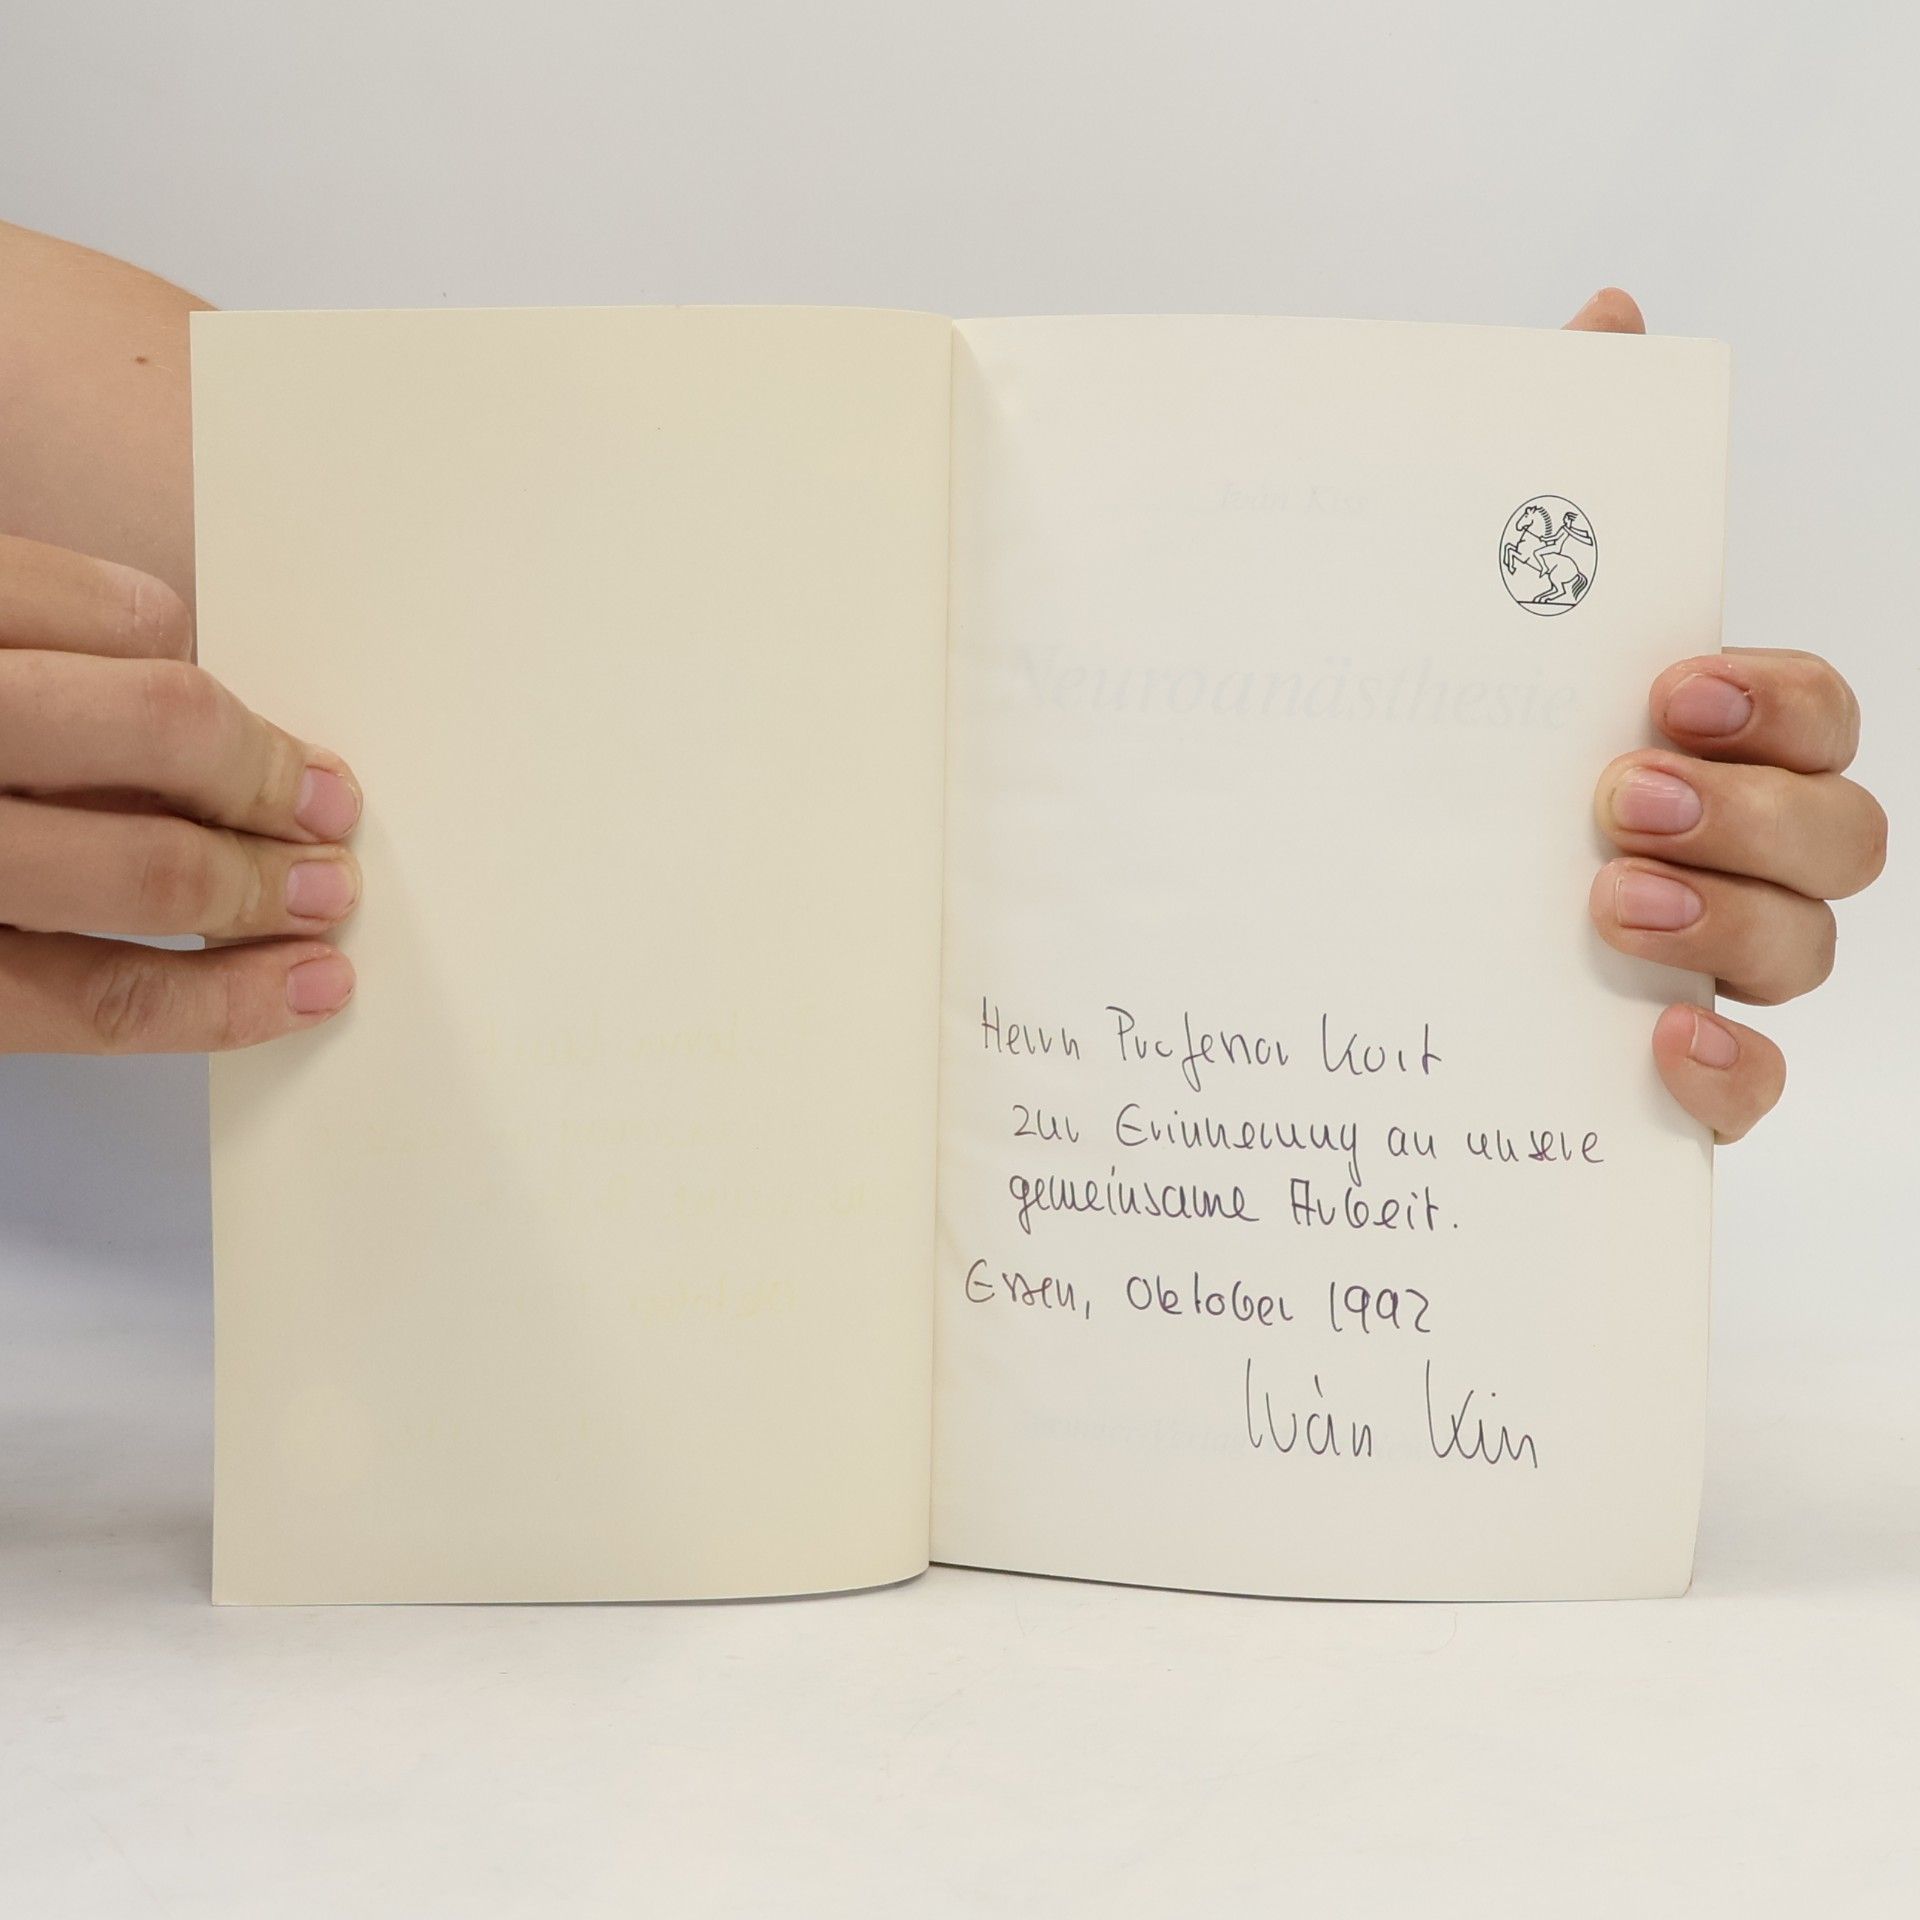 Iván Kiss
Neuroanästhesie
Herrn Professor Kort
zur Erinnerung an unsere
gemeinsame Arbeit.
Essen, Oktober 1992
Iván Kiss